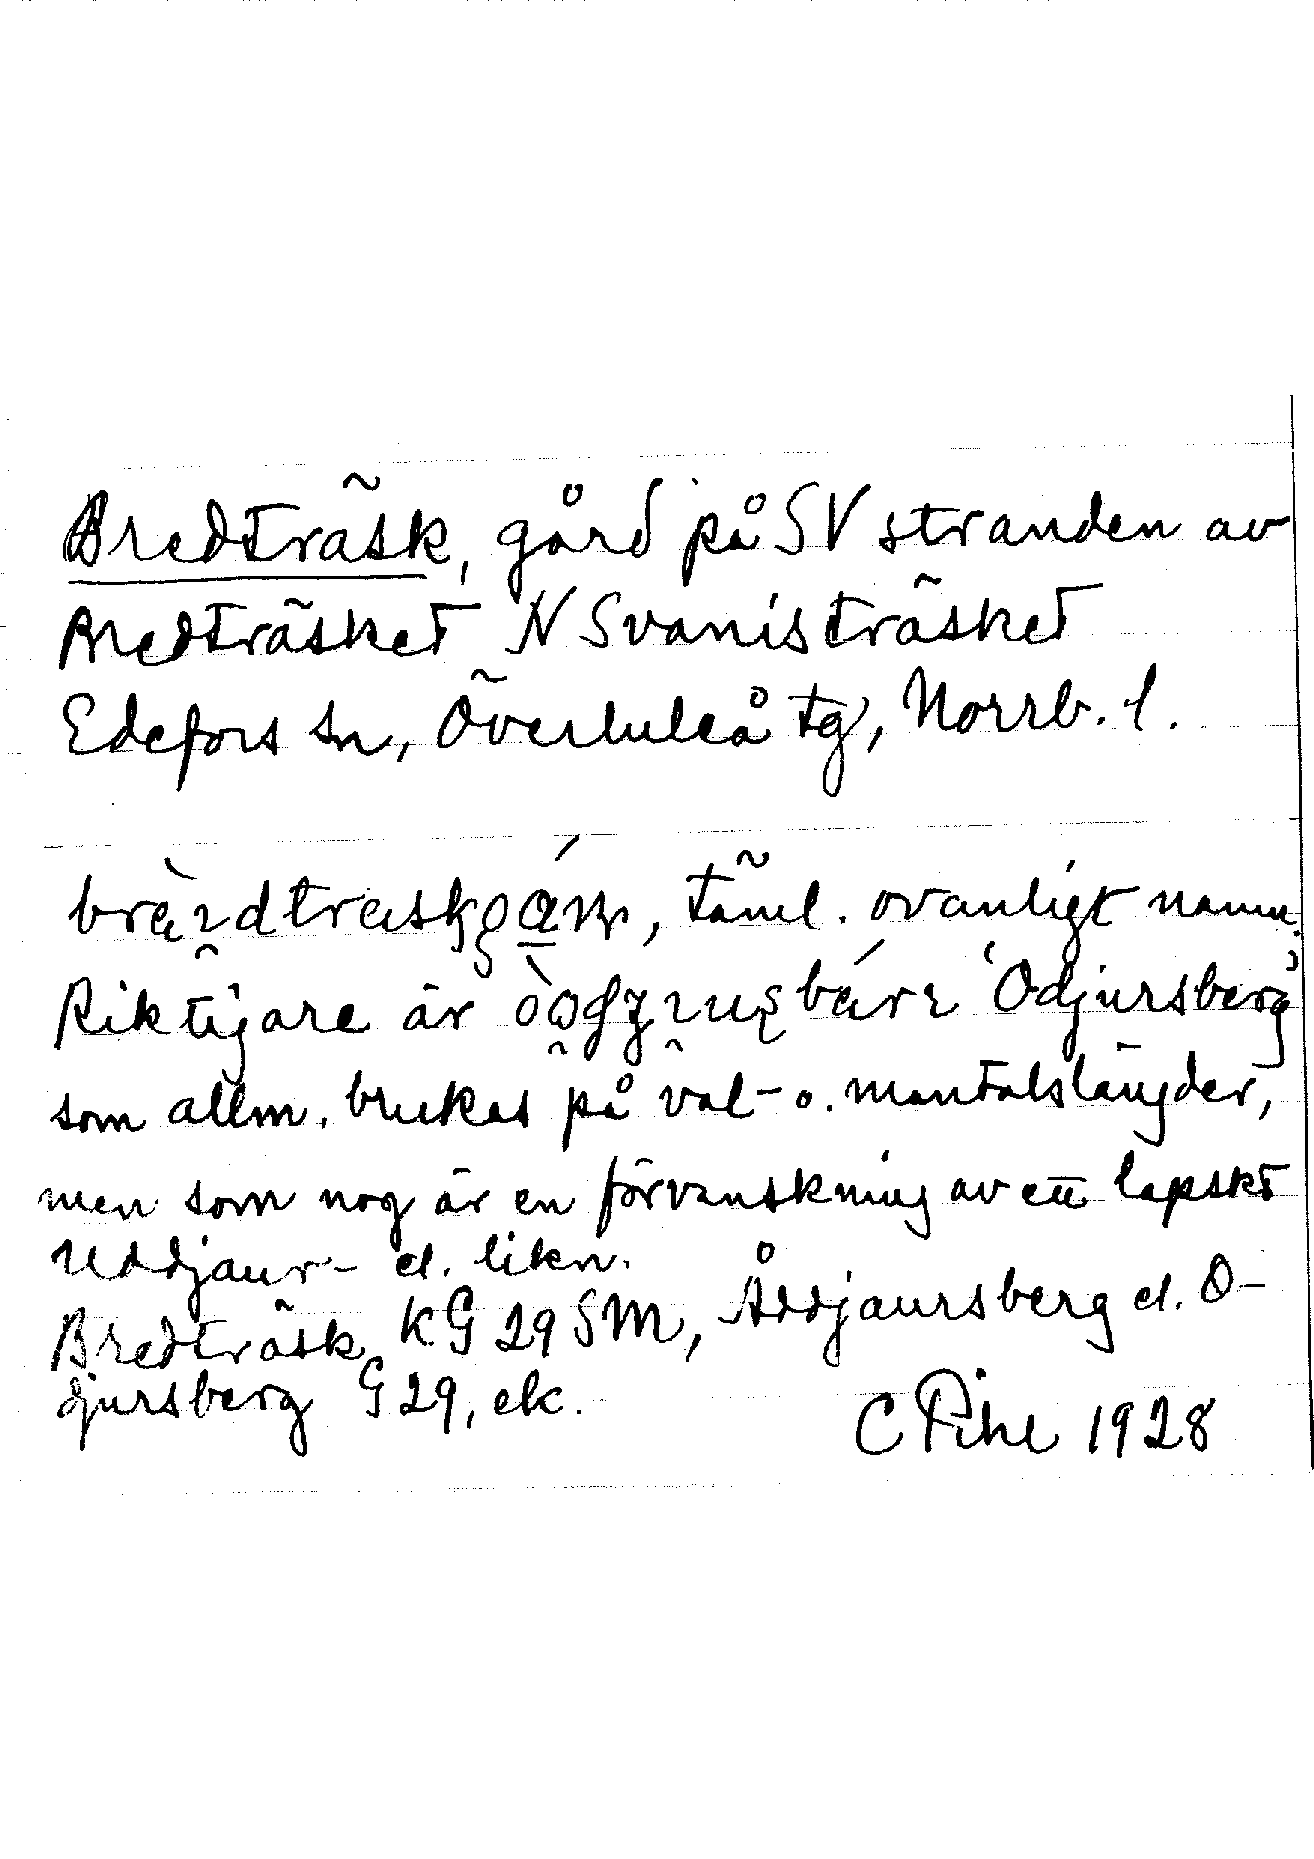 Bredträsk, gård på SV stranden av
Bredträsket N Svanisträsket
Edefors sn, Överluleå tg, Norrb. l.
täml. ovanligt namn.
Riktigare är 'Odjursberg'
som allm. brukas på val- o. mantalslängder,
men som nog är en förvanskning av ett lapskt
Uddjaur- el. likn.
Bredträsk KG 29 SM, Åddjaursberg el. O-
djursberg G 29, ek.
C Pihl 1928